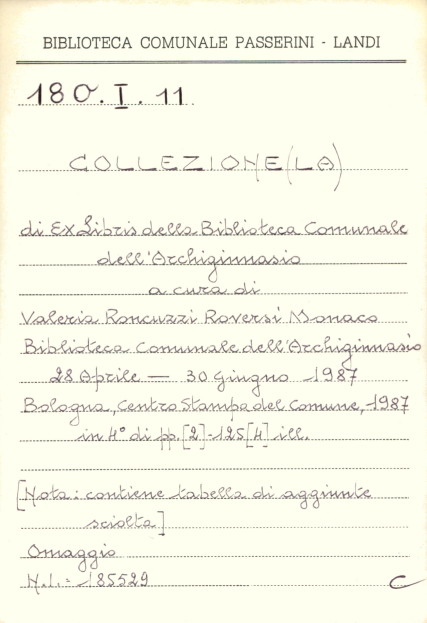 BIBLIOTECA COMUNALE PASSERINI - LANDI
180. I. 11.
COLLEZIONE (LA)
di Ex Libris della Biblioteca Comunale
dell'Archiginnasio
a cura di
Valeria Roncuzzi Roversi Monaco
Biblioteca Comunale dell'Archiginnasio
28 Aprile — 30 Giugno 1987
Bologna, Centro Stampa del Comune, 1987
in 4° di pp. [2]-125 [4] ill.
[Nota: contiene tabella di aggiunte
sciolta]
Omaggio
N.I.= 185529
C